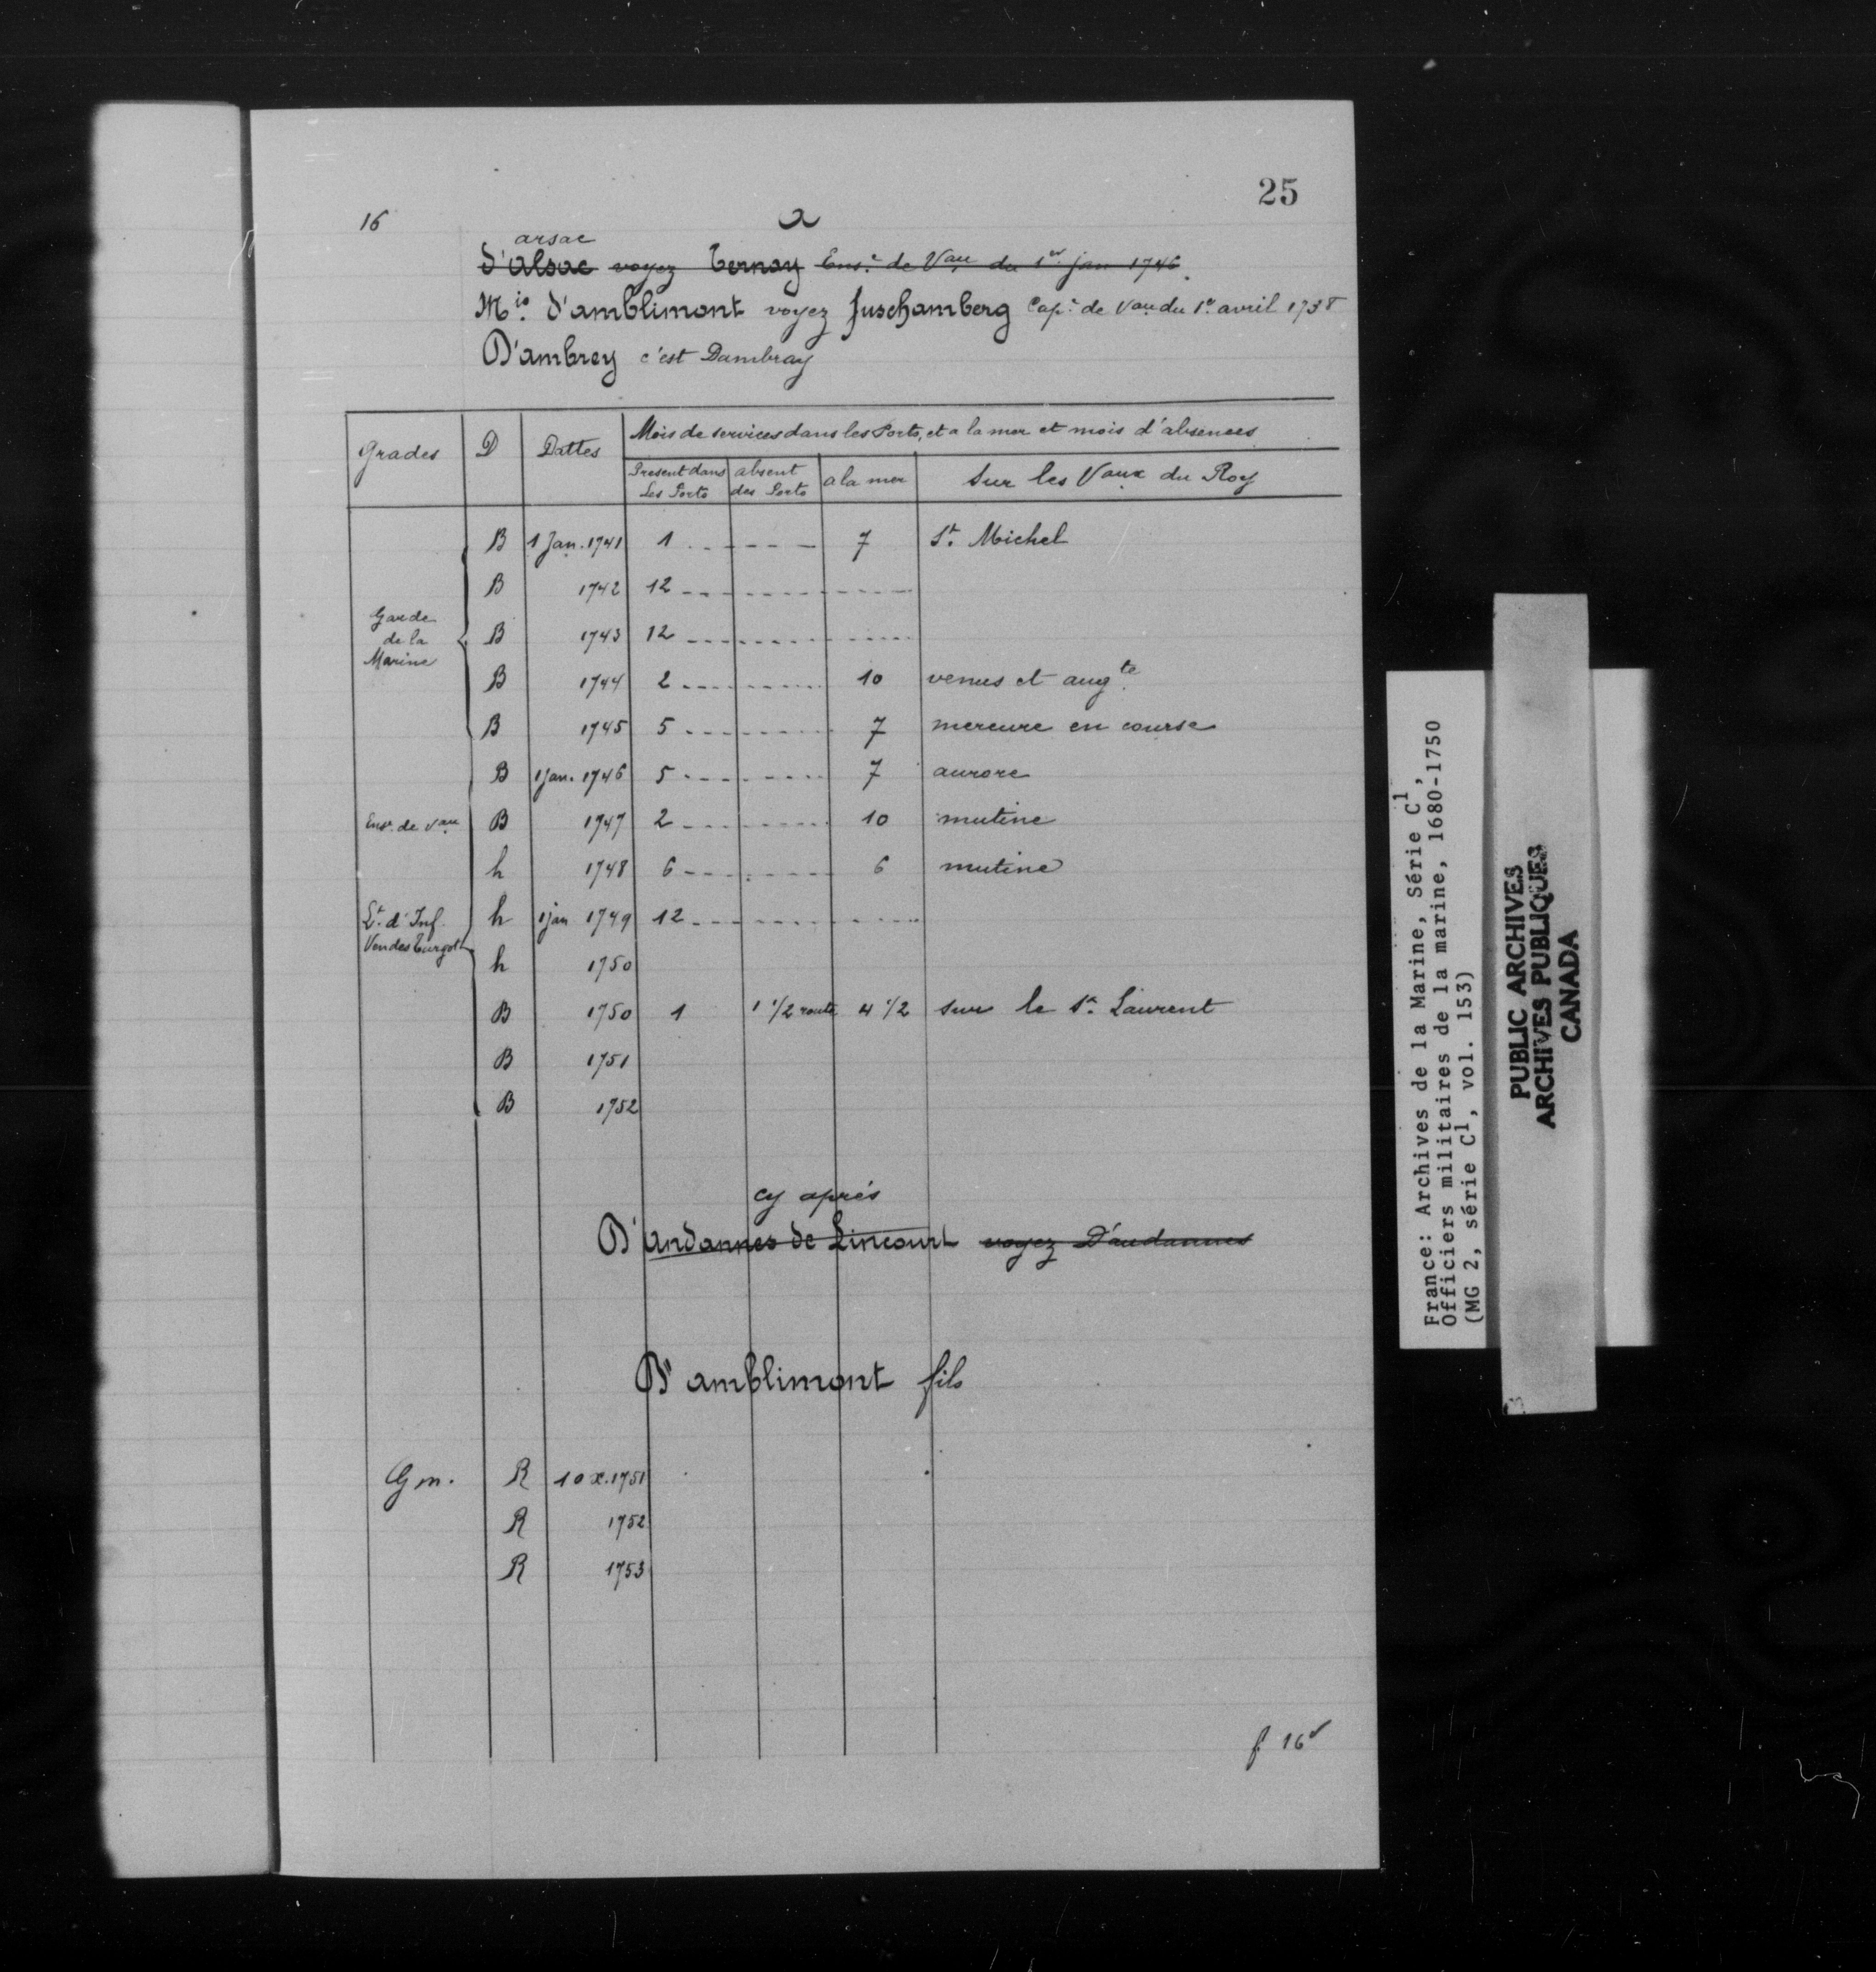 25
16
a
arsac
d'alsac voyez Ternay Ens.e de Vau du 1er jan 1746.
Mis d'amblimont voyez Fuschamberg Cap.e de Vau du 1er avril 1738
D'ambrey c'est Dambray
Grades D Dattes Mois de services dans les Ports, et a la mer et mois d'absences
Present dans Les Ports absent des Ports a la mer Sur les Vaux du Roy
B 1 Jan. 1741 1 7 St. Michel
B 1742 12
Garde de la Marine B 1743 12
B 1744 2 10 venus et augte
B 1745 5 7 mercure en course
B 1 jan. 1746 5 7 aurore
Ense. de Vau B 1747 2 10 mutine
h 1748 6 6 mutine
Lt. d'Inf. h 1 jan 1749 12
h 1750
B 1750 1 1 1/2 route 4 1/2 sur le St. Laurent
B 1751
B 1752
cy après
D'andannes de Lincourt voyez D'audannes
D'amblimont fils
G m. R 10 x. 1751
R 1752
R 1753
f. 16v
France: Archives de la Marine, Série C1,
Officiers militaires de la marine, 1680-1750
(MG 2, série C1, vol. 153)
PUBLIC ARCHIVES
ARCHIVES PUBLIQUES
CANADA